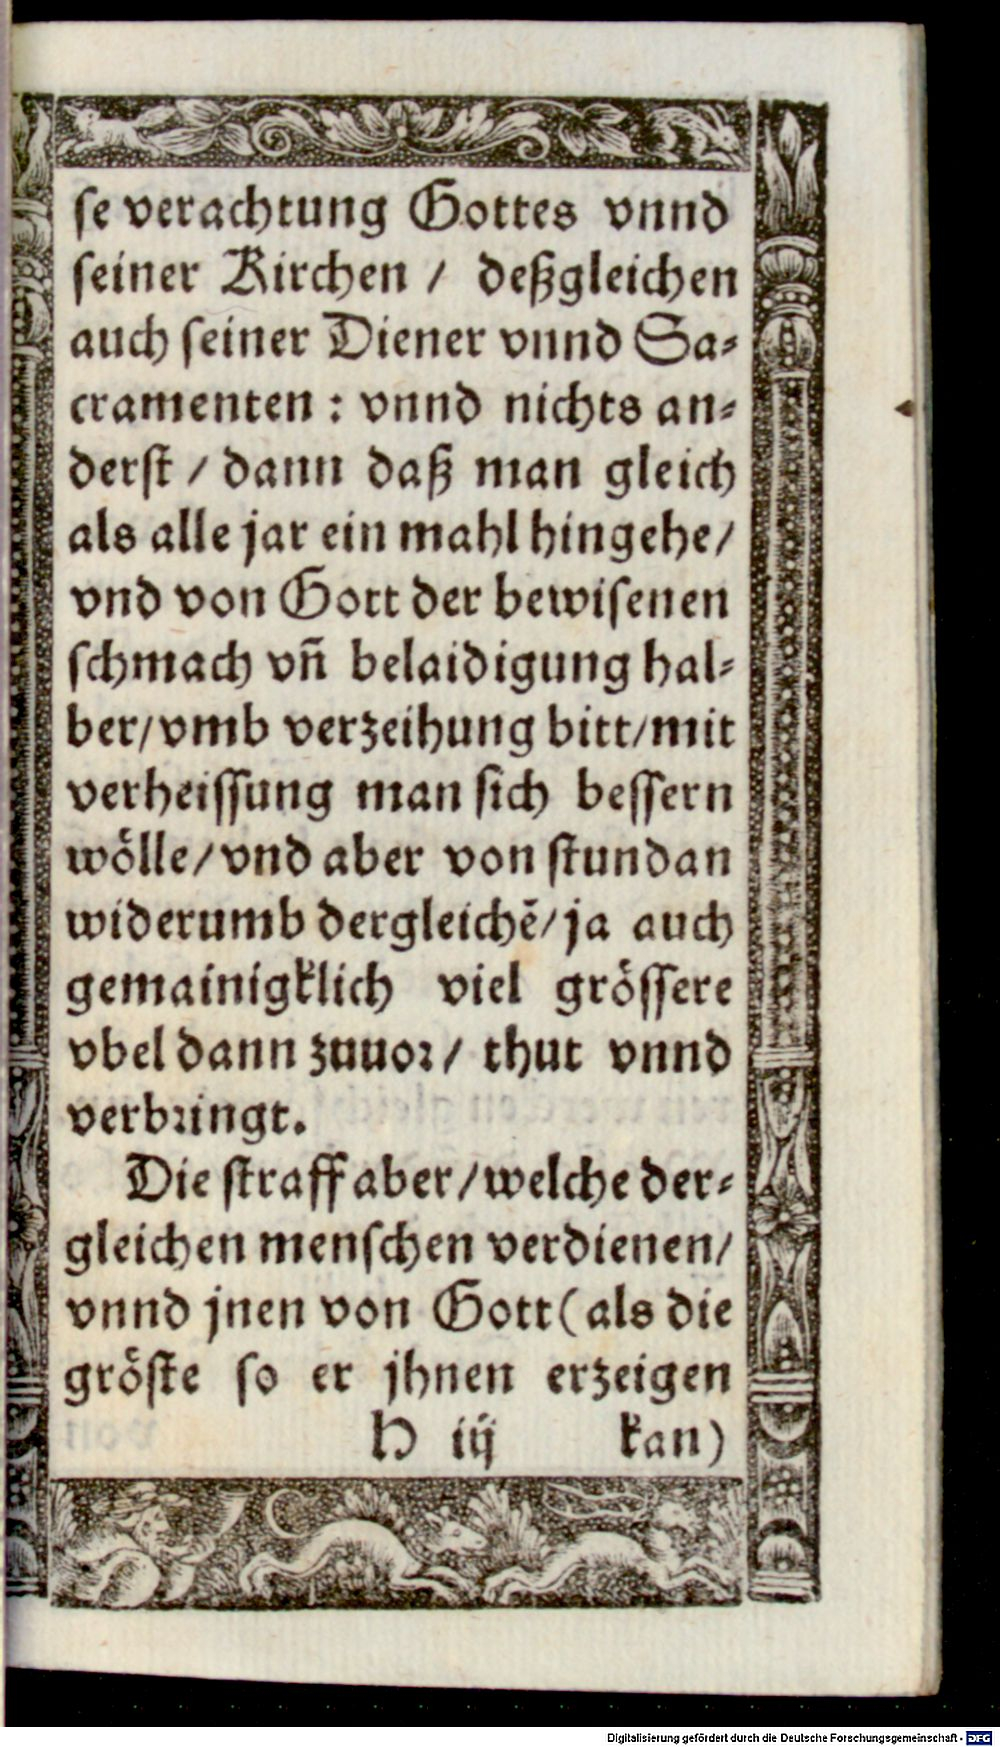 se verachtung Gottes vnnd
seiner Kirchen / deßgleichen
auch seiner Diener vnnd Sa-
cramenten : vnnd nichts an-
derst / dann daß man gleich
als alle jar ein mahl hingehe/
vnd von Gott der bewisenen
schmach vn̄ belaidigung hal-
ber/vmb verzeihung bitt/mit
verheissung man sich bessern
wölle/vnd aber von stundan
widerumb dergleichē/ja auch
gemainigklich viel grössere
vbel dann zuuor/ thut vnnd
verbringt.
Die straff aber/welche der-
gleichen menschen verdienen/
vnnd jnen von Gott (als die
gröste so er jhnen erzeigen
H iij kan)
Digitalisierung gefördert durch die Deutsche Forschungsgemeinschaft - DFG